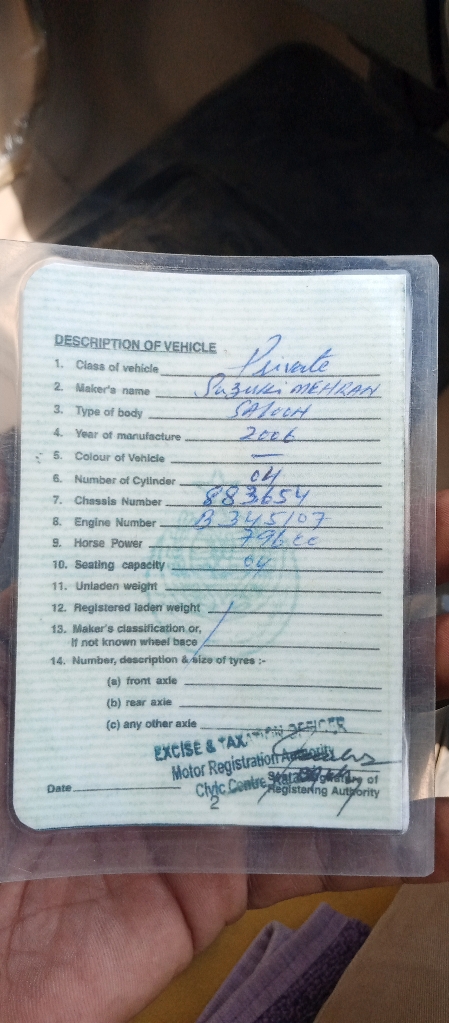 DESCRIPTION OF VEHICLE
1. Class of vehicle Private
2. Maker's name Suzuki MEHRAN
3. Type of body SALOON
4. Year of manufacture 2006
5. Colour of Vehicle —
6. Number of Cylinder 04
7. Chassis Number 883654
8. Engine Number B 345107
9. Horse Power 796cc
10. Seating capacity 04
11. Unladen weight
12. Registered laden weight
13. Maker's classification or,
If not known wheel base
14. Number, description & size of tyres :-
(a) front axle
(b) rear axle
(c) any other axle
EXCISE & TAXATION OFFICER
Motor Registration Authority
Civic Centre
Signature of
Date
Registering Authority
2